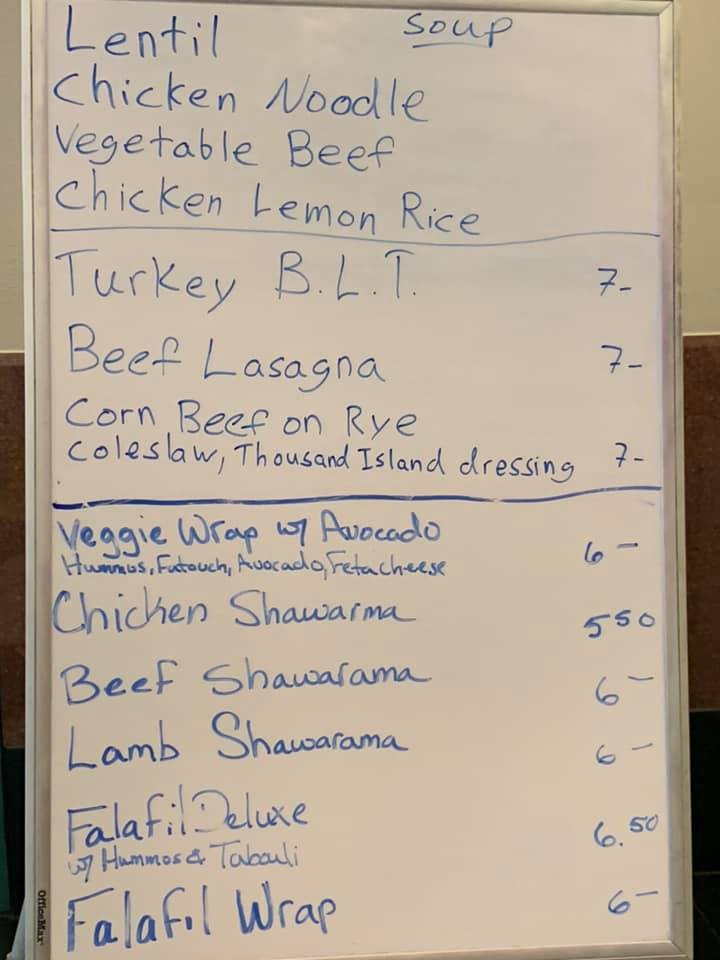 Lentil soup
Chicken Noodle
Vegetable Beef
Chicken Lemon Rice
Turkey B.L.T. 7-
Beef Lasagna 7-
Corn Beef on Rye
Coleslaw, Thousand Island dressing 7-
Veggie Wrap w/ Avocado
Hummos, Fatouch, Avocado, Feta cheese 6-
Chicken Shawarma 5 50
Beef Shawarama 6-
Lamb Shawarama 6-
Falafil Deluxe 6.50
w/ Hummos & Tabouli
Falafil Wrap 6-
OfficeMax